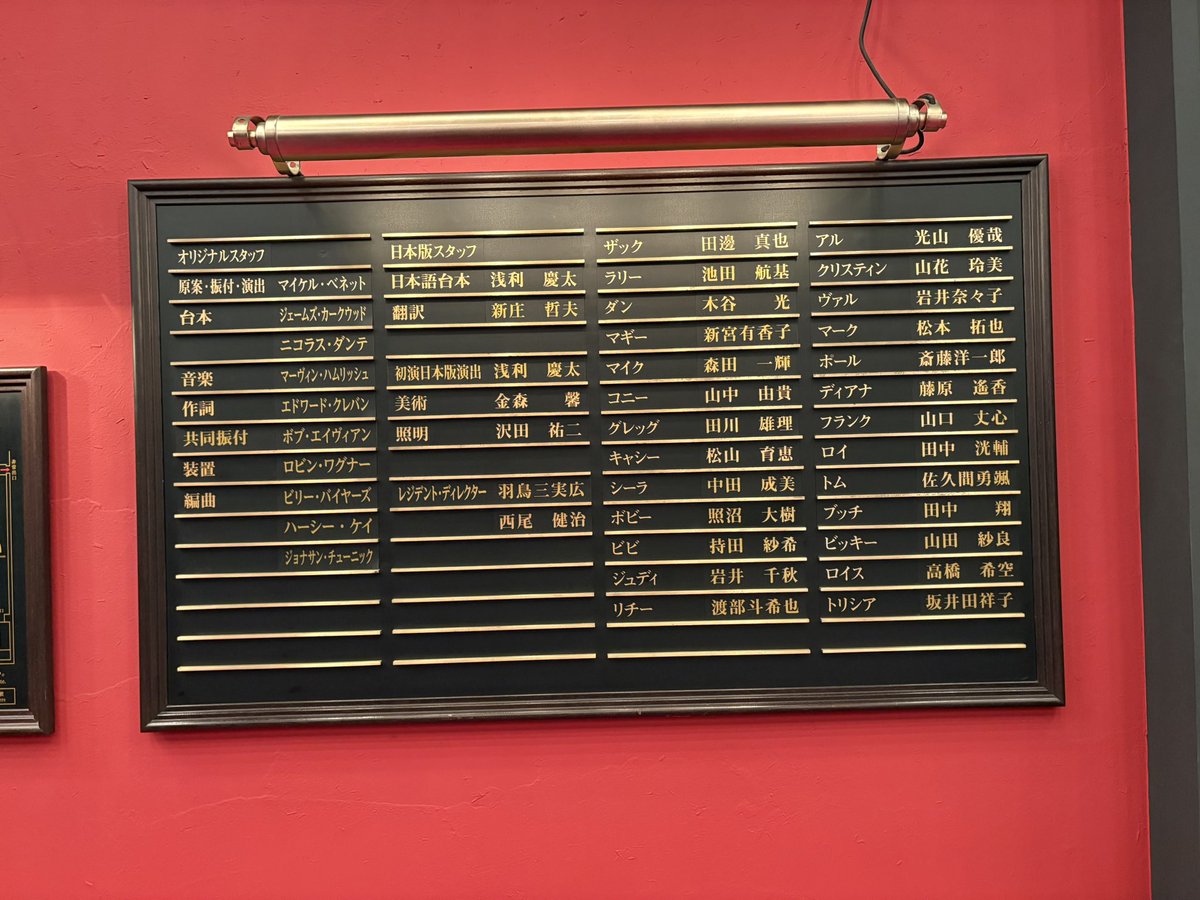 オリジナルスタッフ
原案・振付・演出 マイケル・ベネット
台本 ジェームズ・カークウッド
ニコラス・ダンテ
音楽 マーヴィン・ハムリッシュ
作詞 エドワード・クレバン
共同振付 ボブ・エイヴィアン
装置 ロビン・ワグナー
編曲 ビリー・バイヤーズ
ハーシー・ケイ
ジョナサン・チューニック
日本版スタッフ
日本語台本 浅利 慶太
翻訳 新庄 哲夫
初演日本版演出 浅利 慶太
美術 金森 馨
照明 沢田 祐二
レジデント・ディレクター 羽鳥三実広
西尾 健治
ザック 田邊 真也
ラリー 池田 航基
ダン 木谷 光
マギー 新宮有香子
マイク 森田 一輝
コニー 山中 由貴
グレッグ 田川 雄理
キャシー 松山 育恵
シーラ 中田 成美
ボビー 照沼 大樹
ビビ 持田 紗希
ジュディ 岩井 千秋
リチー 渡部斗希也
アル 光山 優哉
クリスティン 山花 玲美
ヴァル 岩井奈々子
マーク 松本 拓也
ポール 斎藤洋一郎
ディアナ 藤原 遙香
フランク 山口 丈心
ロイ 田中 洸輔
トム 佐久間勇颯
ブッチ 田中 翔
ビッキー 山田 紗良
ロイス 高橋 希空
トリシア 坂井田祥子